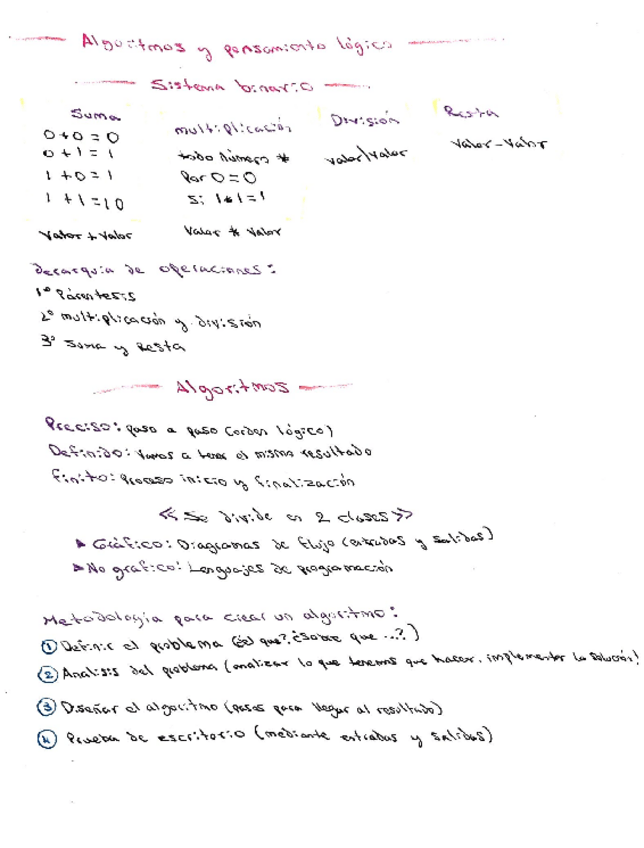 Algoritmos y pensamiento lógico
Sistema binario
Suma
0+0=0
0+1=1
1+0=1
1+1=10
Valor + Valor
multiplicación
todo número *
Por 0=0
Si 1*1=1
Valor * Valor
División
valor/valor
Resta
Valor-Valor
Jerarquía de operaciones:
1º Paréntesis
2º multiplicación y división
3º Suma y Resta
Algoritmos
Preciso: paso a paso (orden lógico)
Definido: vamos a tener el mismo resultado
finito: proceso inicio y finalización
<< Se divide en 2 clases >>
Gráfico: Diagramas de flujo (entradas y salidas)
No grafico: Lenguajes de programación
Metodología para crear un algoritmo:
1 Definir el problema (el que? ¿Sobre que ...?)
2 Analisis del problema (analizar lo que tenemos que hacer, implementar la solución)
3 Diseñar el algoritmo (pasos para llegar al resultado)
4 Prueba de escritorio (mediante entradas y salidas)